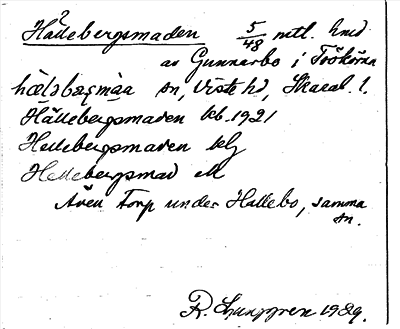 Hällebergsmaden 5/48 mtl. hmd
av Gunnarbo i Trökörna
hælsbæsmaa sn, Viste hd, Skarab. l.
Hällebergsmaden kb. 1921
Hellebergsmaden blj
Hellebergsmad ek
Även torp under Hallebo, samma
sn.
R. Ljunggren 1929.